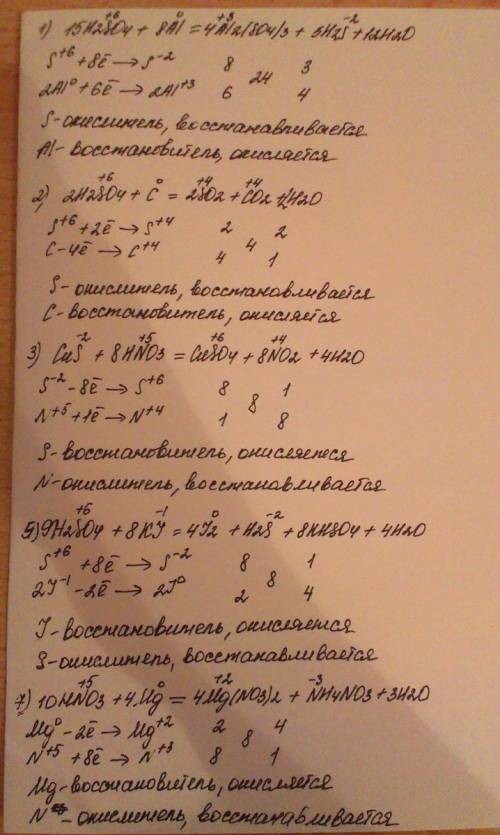 1) 15H2S⁺⁶O4 + 8Al⁰ = 4Al⁺³2(SO4)3 + 3H2S⁻² + 12H2O
S⁺⁶ + 8ē → S⁻² 8 24 3
2Al⁰ + 6ē → 2Al⁺³ 6 4
S - окислитель, восстанавливается
Al - восстановитель, окисляется
2) 2H2S⁺⁶O4 + C⁰ = 2S⁺⁴O2 + C⁺⁴O2 + 2H2O
S⁺⁶ + 2ē → S⁺⁴ 2 4 2
C - 4ē → C⁺⁴ 4 1
S - окислитель, восстанавливается
C - восстановитель, окисляется
3) CuS⁻² + 8HN⁺⁵O3 = CuS⁺⁶O4 + 8N⁺⁴O2 + 4H2O
S⁻² - 8ē → S⁺⁶ 8 8 1
N⁺⁵ + 1ē → N⁺⁴ 1 8
S - восстановитель, окисляется
N - окислитель, восстанавливается
5) 9H2S⁺⁶O4 + 8KJ⁻¹ = 4J⁰2 + H2S⁻² + 8KHSO4 + 4H2O
S⁺⁶ + 8ē → S⁻² 8 8 1
2J⁻¹ - 2ē → 2J⁰ 2 4
J - восстановитель, окисляется
S - окислитель, восстанавливается
7) 10HN⁺⁵O3 + 4Mg⁰ = 4Mg⁺²(NO3)2 + N⁻³H4NO3 + 3H2O
Mg⁰ - 2ē → Mg⁺² 2 8 4
N⁺⁵ + 8ē → N⁺³ 8 1
Mg - восстановитель, окисляется
N - окислитель, восстанавливается